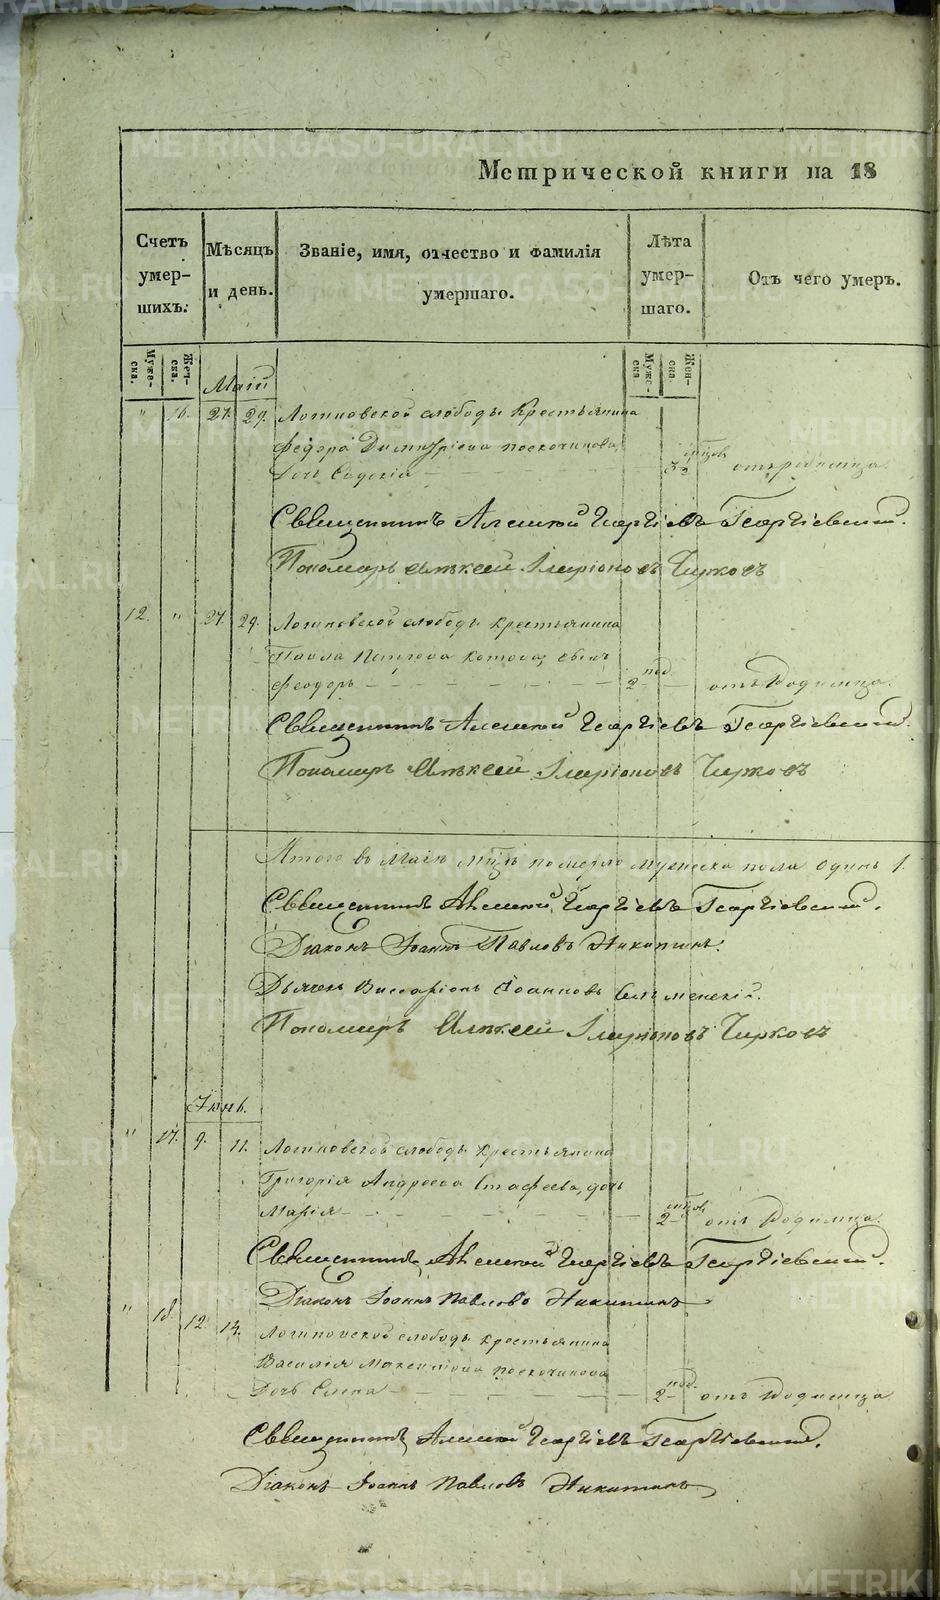 Метрической книги на 18
Счетъ умер-шихъ.
Мѣсяцъ и день.
Званіе, имя, отчество и фамилія умершаго.
Лѣта умер-шаго.
Отъ чего умеръ.
Муже-ска. Жен-ска.
Муже-ска Жен-ска
Маій
" 16. 27. 29. Логиновской слободы крестьянина
Федора Димитріева поскочинова
дочь Евдокія 3 отъ родимца.
Священникъ Алексѣй Георгіевъ Георгіевскій.
Пономарь Алексей Иларіоновъ Чирковъ
12. " 27. 29. Логиновской слободы крестьянина
Павла Петрова Котова, сынъ
Феодоръ 2 год. отъ Родимца.
Священникъ Алексѣй Георгіевъ Георгіевскій.
Пономарь Алексей Иларіоновъ Чирковъ
Итого въ Маіѣ м-цѣ померло мужеска пола одинъ 1.
Священникъ Алексѣй Георгіевъ Георгіевскій.
Діаконъ Іоаннъ Павловъ Никитинъ.
Дьячекъ Виссаріонъ Іоанновъ
Пономарь Алексей Иларіоновъ Чирковъ
Іюнь.
" 17. 9. 11. Логиновской слободы крестьянина
Григорія Андреева Стафеева, дочь
Марія 2 отъ Родимца.
Священникъ Алексѣй Георгіевъ Георгіевскій.
Діаконъ Іоаннъ Павловъ Никитинъ
" 18. 12. 14. Логиновской слободы крестьянина
Василія Максимова поскочинова
дочь Елена 2 год. отъ Родимца
Священникъ Алексѣй Георгіевъ Георгіевскій.
Діаконъ Іоаннъ Павловъ Никитинъ
METRIKI.GASO-URAL.RU